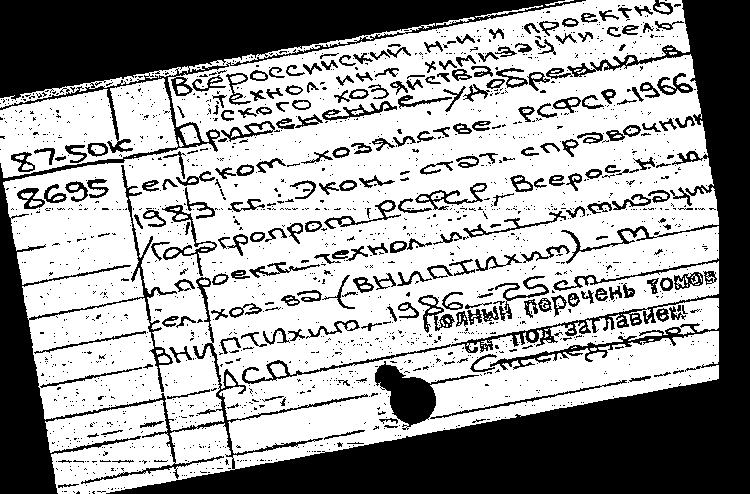 Всероссийский н.-и. и проектно-
технол. ин-т химизации сель-
ского хозяйства.
Применение удобрений в
87-50к
8695
сельском хозяйстве РСФСР 1966-
1983 гг.: Экон.-стат. справочник
/Госагропром РСФСР, Всерос. н.-и.
и проект.-технол ин-т химизации
сел. хоз-ва (ВНИПТИХИМ) - М.:
ВНИПТИхим, 1986.-25 см.
Полный перечень томов
см. под заглавием.
ДСП.
См. след. карт